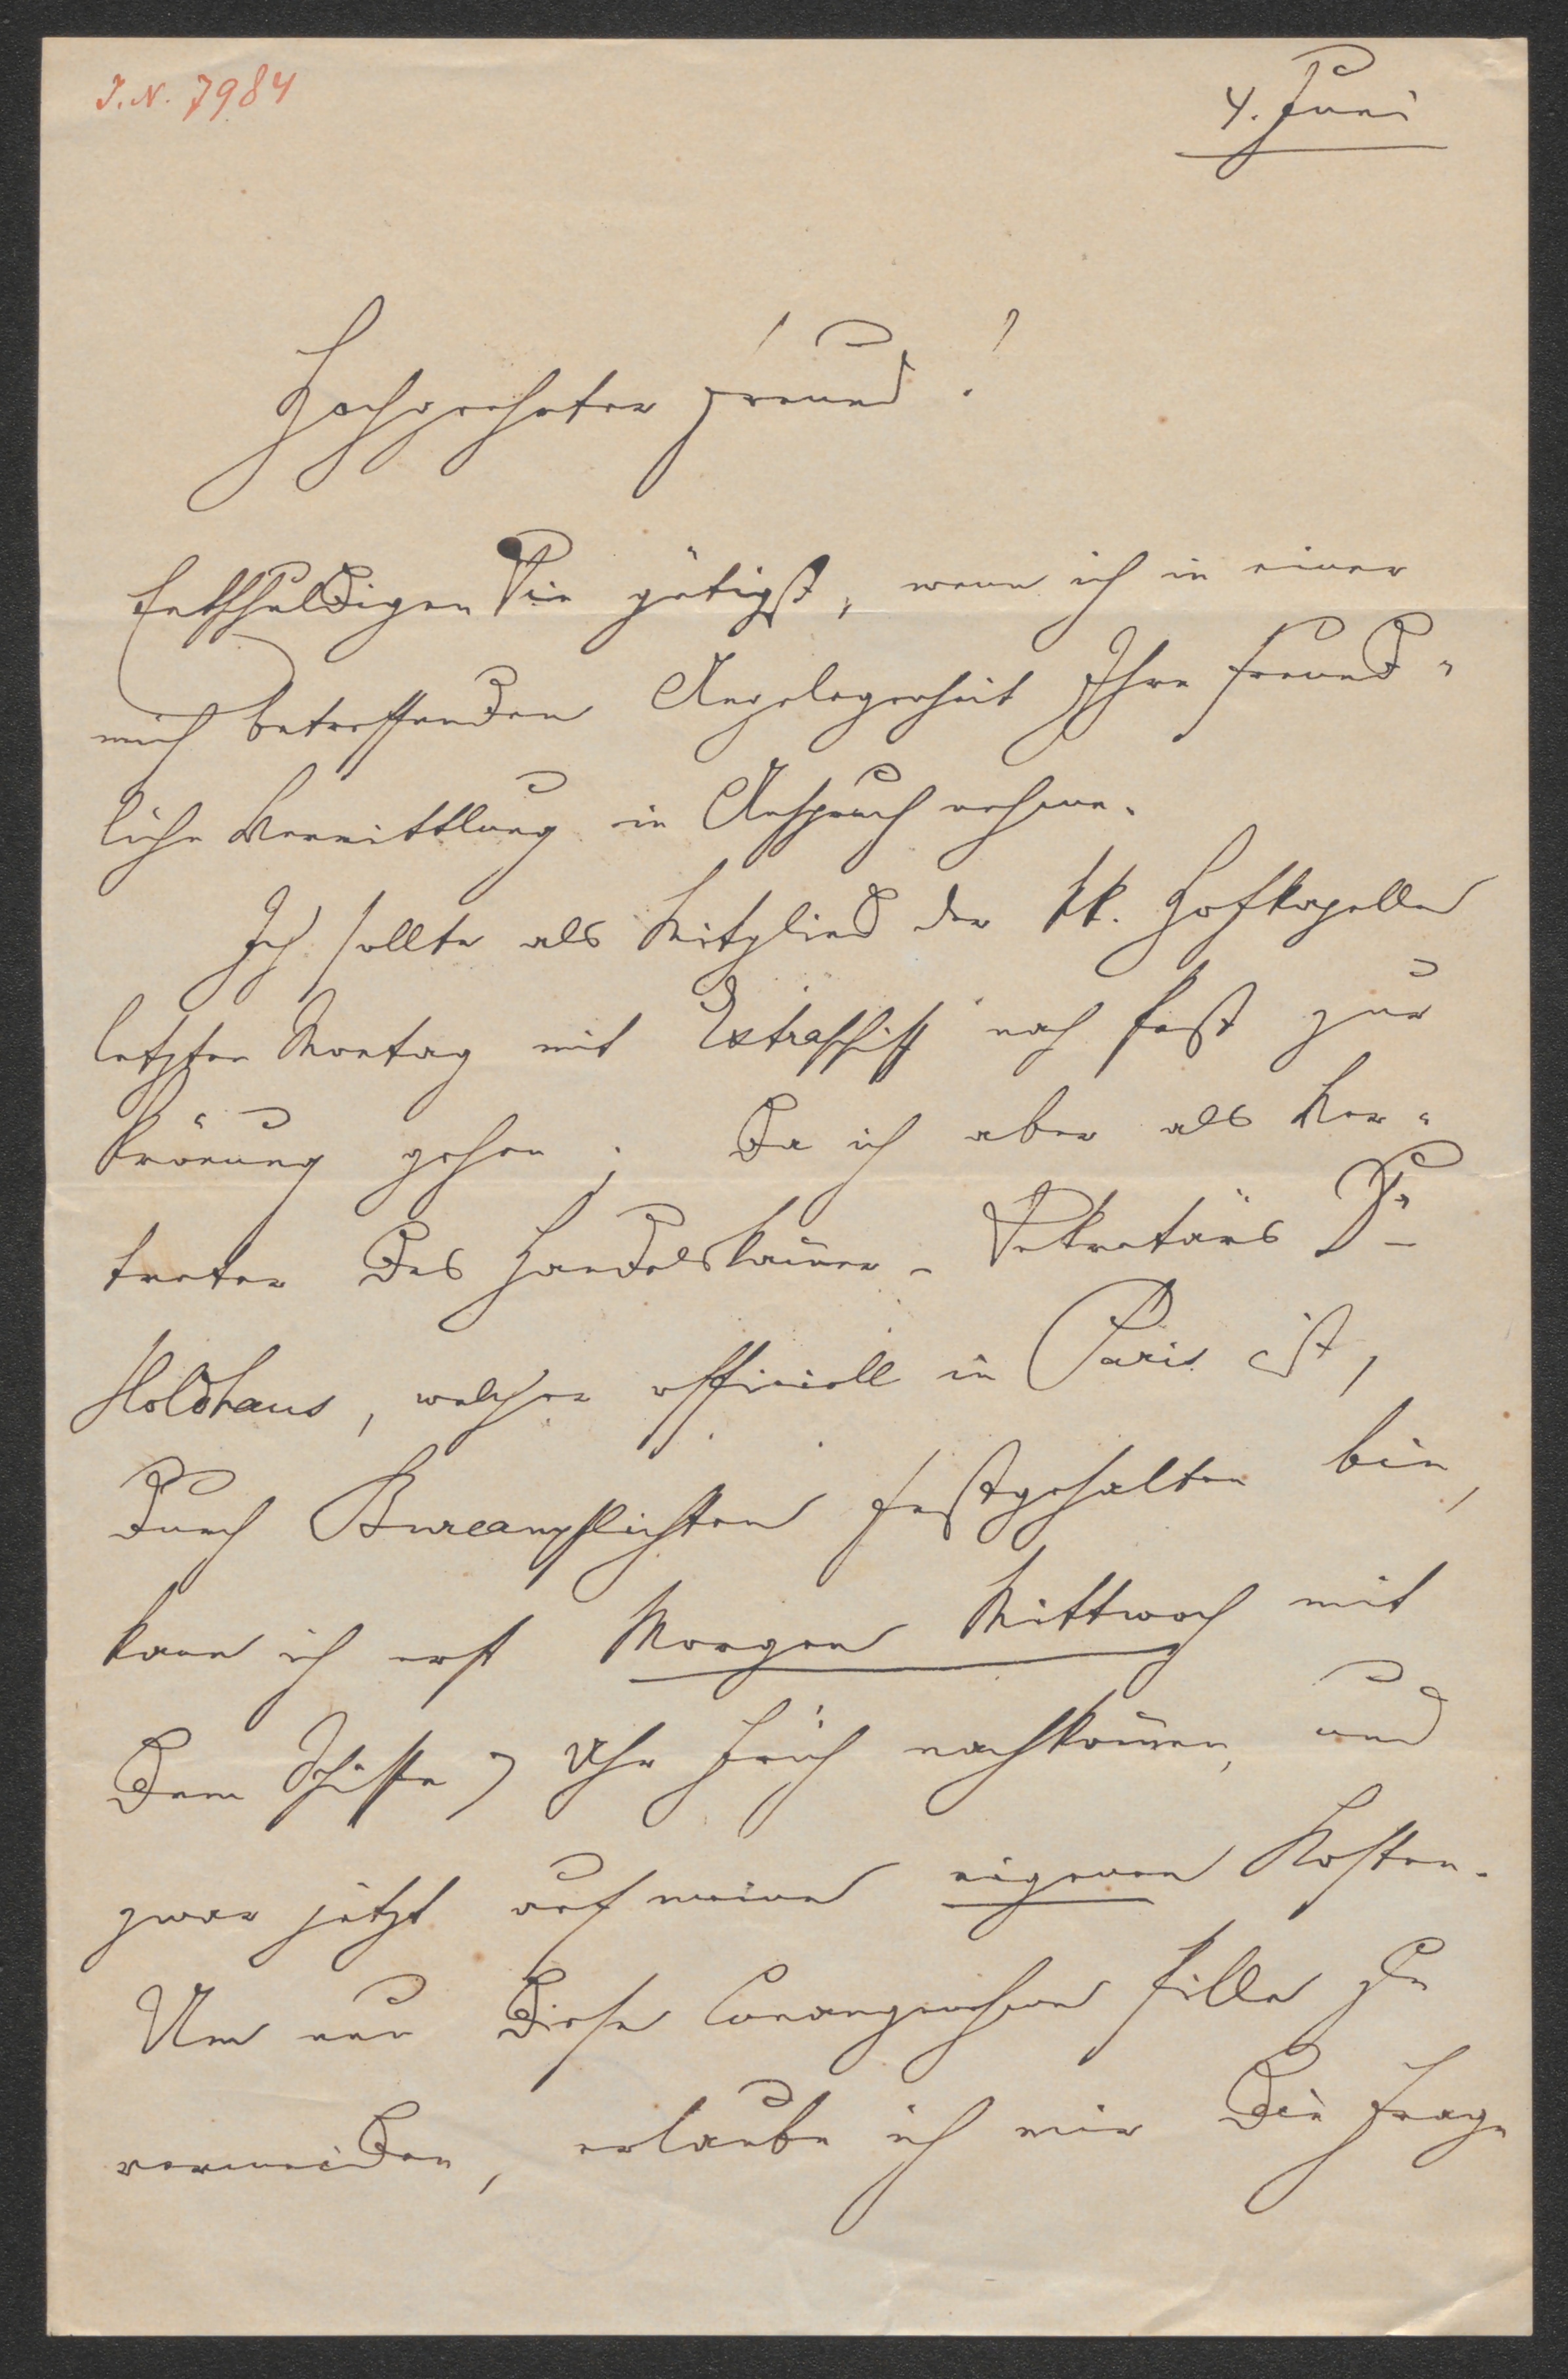 I.N. 7984
4. Juni
Hochgeehrter Freund!
Entschuldigen Sie gütigst, wenn ich in einer
mich betreffenden Angelegenheit Ihre freund-
liche Vermittlung in Anspruch nehme.
Ich sollte als Mitglied der kk. Hofkapelle
letzten Montag mit Extraschiff nach Pest zur
Krönung gehen; Da ich aber als Ver-
treter des Handelskam̅er-Sekretärs Dr
Holdhaus, welcher officiell in Paris ist,
durch Bureaupflichten festgehalten bin,
kann ich erst Morgen Mittwoch mit
dem Schiffe 7 Uhr früh nachkom̅en, und
zwar jetzt auf meine eigenen Kosten.
Um nun diese unangenehme Pille zu
vermeiden, erlaube ich mir die Frage